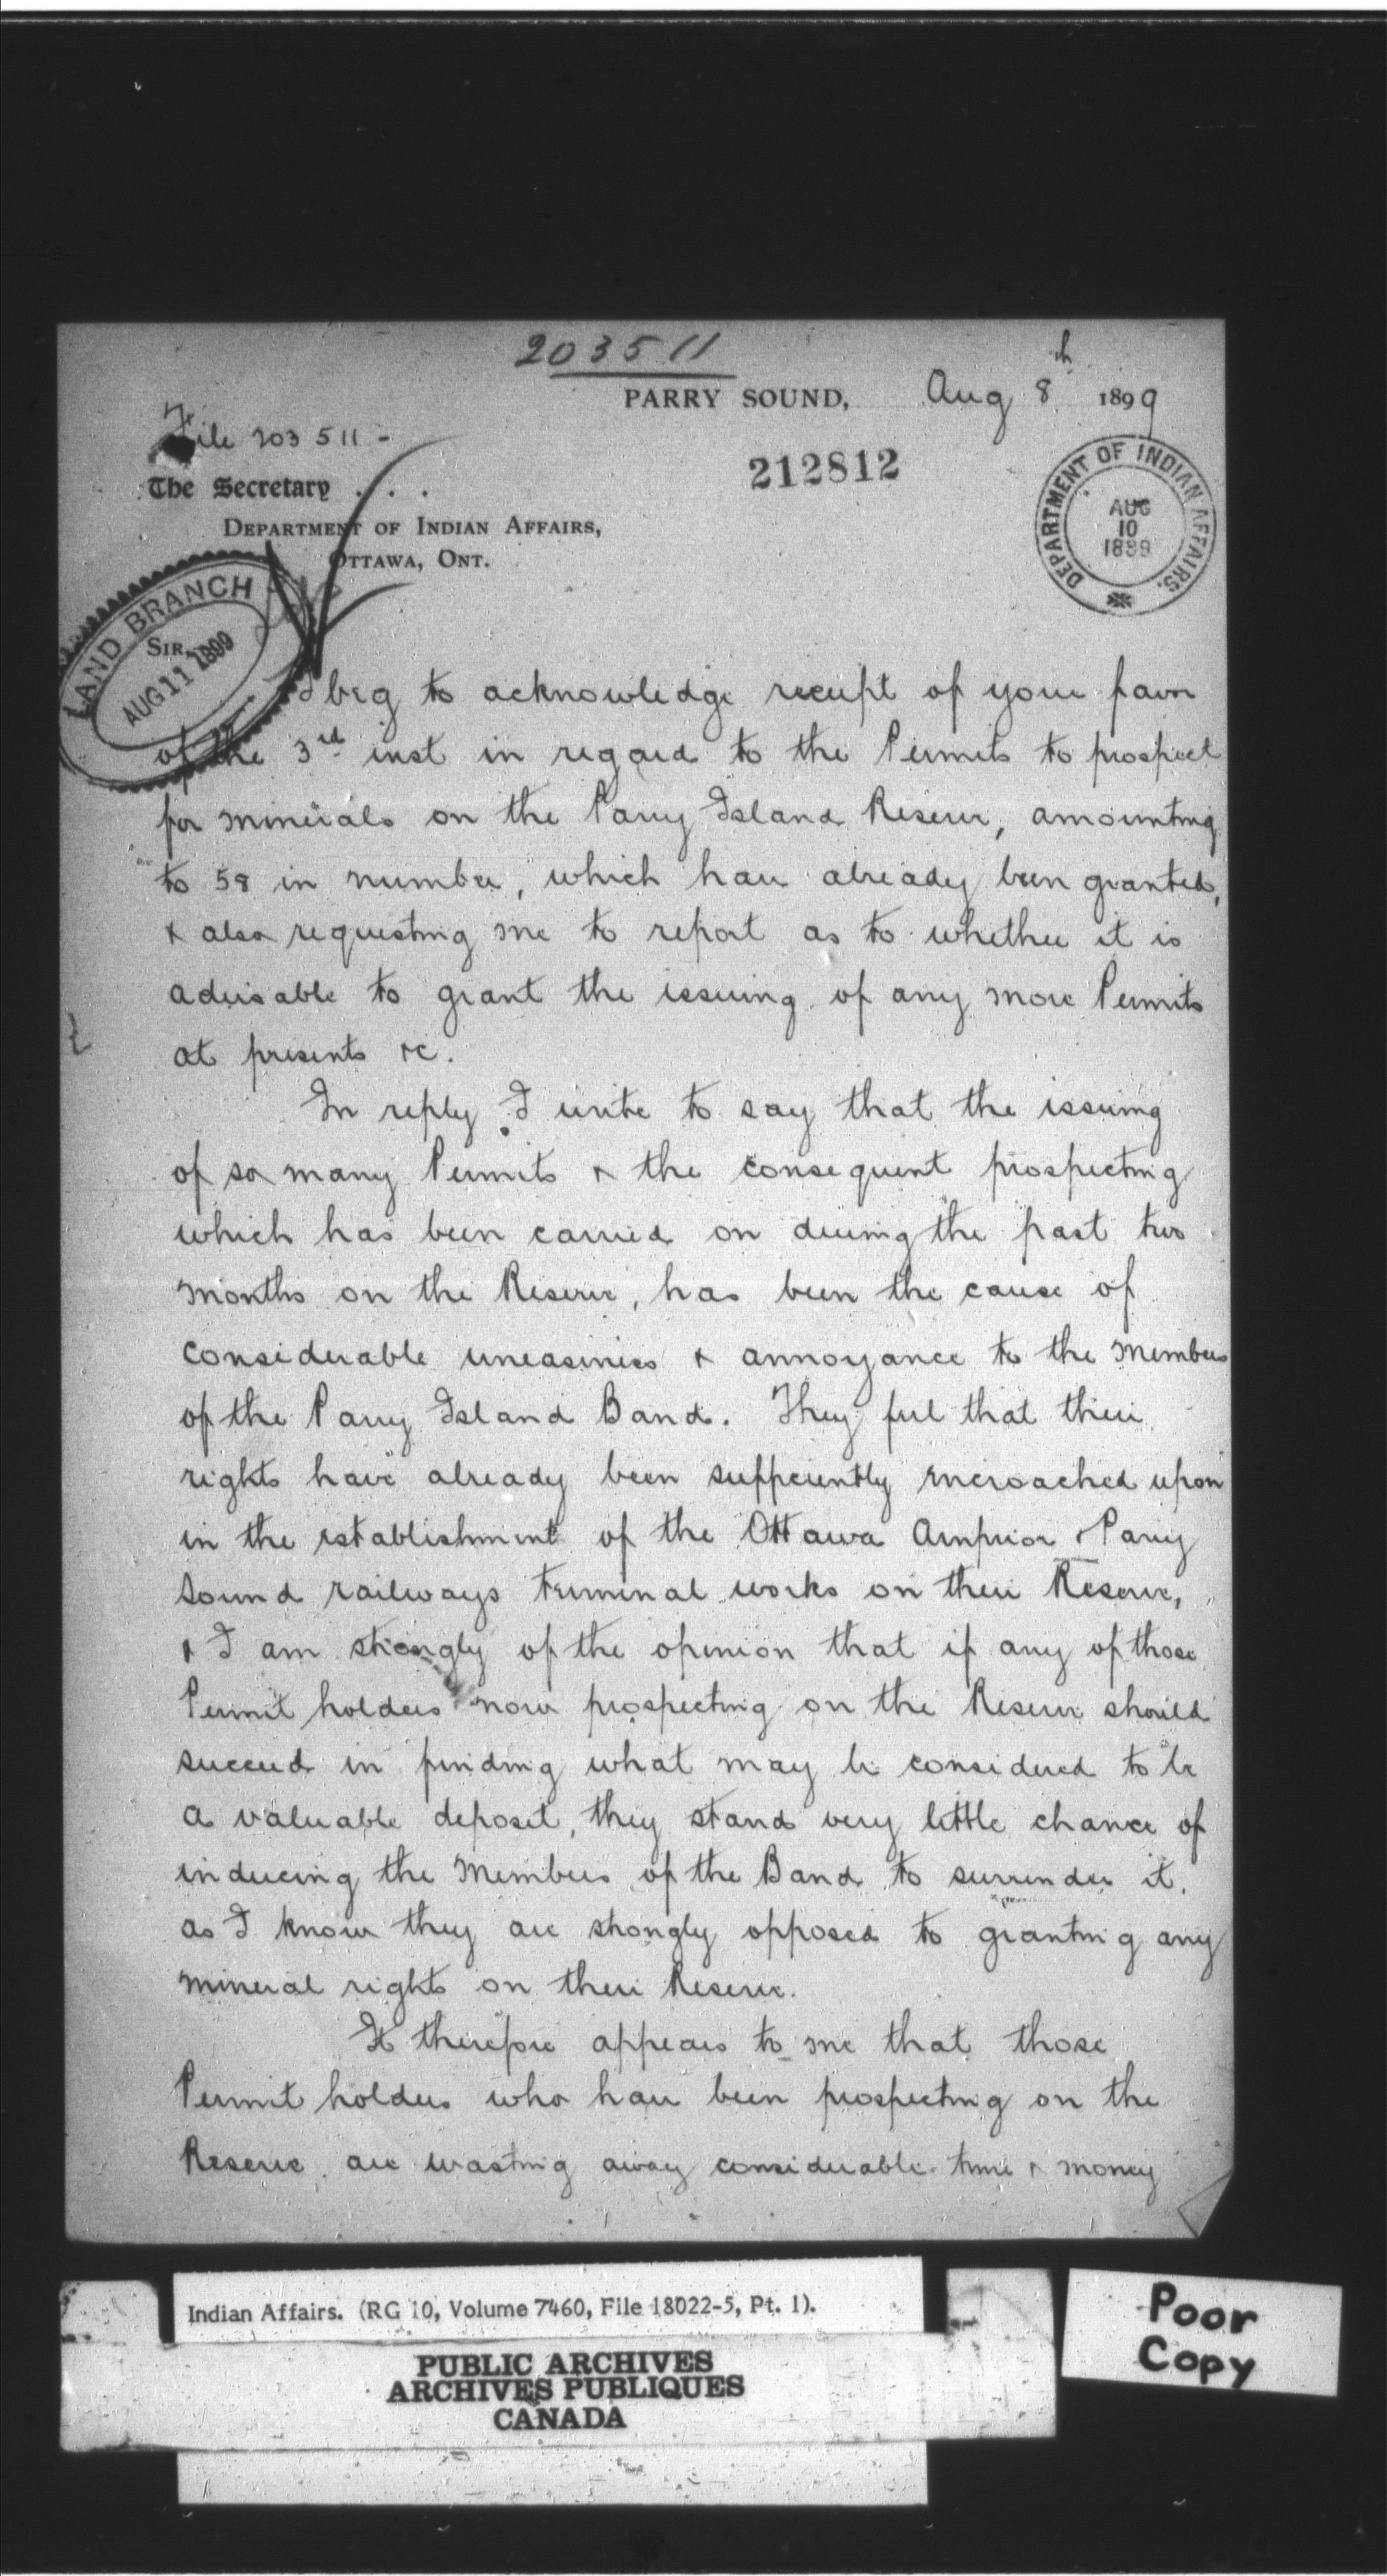 203511
PARRY SOUND, Aug 8th 1899
File 203511-
212812
The Secretary . . .
DEPARTMENT OF INDIAN AFFAIRS,
OTTAWA, ONT.
DEPARTMENT OF INDIAN AFFAIRS.
AUG
10
1899
LAND BRANCH
AUG 11 1899
SIR,
I beg to acknowledge receipt of your favor
of the 3rd inst in regard to the Permits to prospect
for minerals on the Parry Island Reserve, amounting
to 58 in number, which have already been granted,
& also requesting me to report as to whether it is
advisable to grant the issuing of any more Permits
at present &c.
In reply I write to say that the issuing
of so many Permits & the consequent prospecting
which has been carried on during the past two
months on the Reserve, has been the cause of
considerable uneasiness & annoyance to the Members
of the Parry Island Band. They feel that their
rights have already been sufficiently encroached upon
in the establishment of the Ottawa Arnprior & Parry
Sound railways terminal works on their Reserve,
& I am strongly of the opinion that if any of those
Permit holders now prospecting on the Reserve should
succeed in finding what may be considered to be
a valuable deposit, they stand very little chance of
inducing the Members of the Band to surrender it,
as I know they are strongly opposed to granting any
mineral rights on their Reserve.
It therefore appears to me that those
Permit holders who have been prospecting on the
Reserve are wasting away considerable time & money
Indian Affairs. (RG 10, Volume 7460, File 18022-5, Pt. 1).
PUBLIC ARCHIVES
ARCHIVES PUBLIQUES
CANADA
Poor
Copy